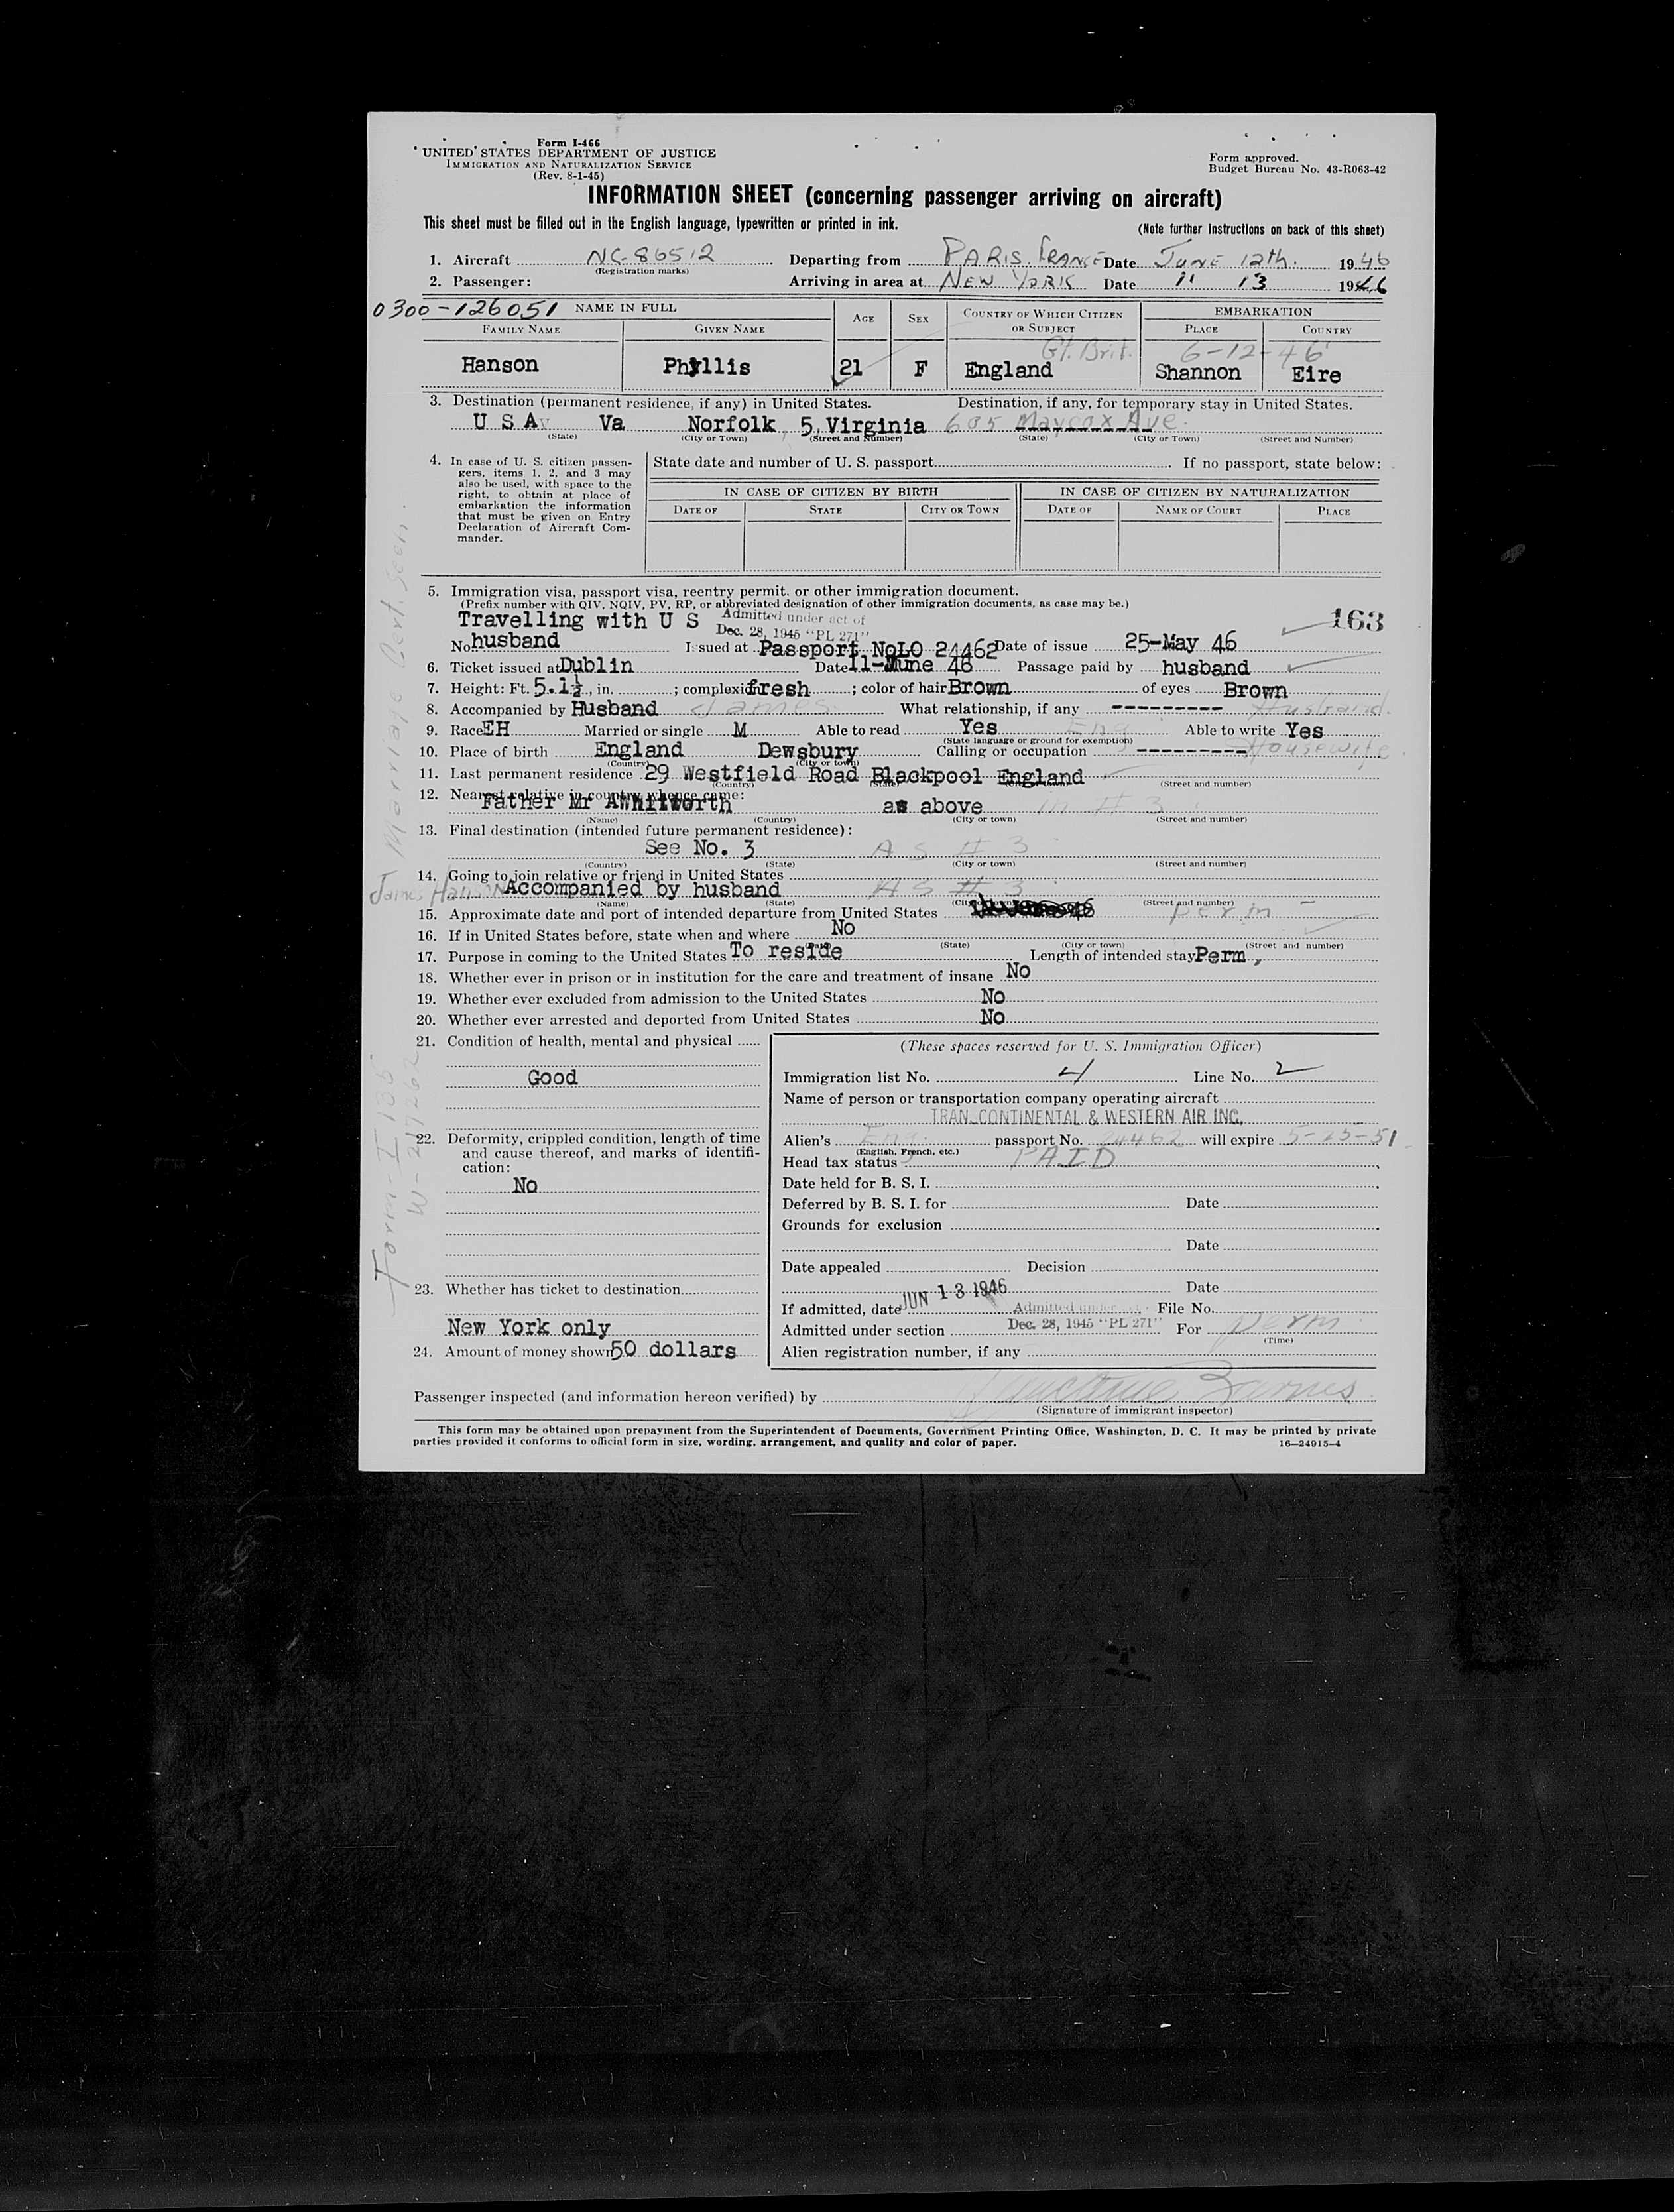 Form I-466
UNITED STATES DEPARTMENT OF JUSTICE
IMMIGRATION AND NATURALIZATION SERVICE
(Rev. 8-1-45)
Form approved.
Budget Bureau No. 43-R063-42
INFORMATION SHEET (concerning passenger arriving on aircraft)
This sheet must be filled out in the English language, typewritten or printed in ink. (Note further instructions on back of this sheet)
1. Aircraft NC-86512 Departing from PARIS. FRANCE Date JUNE 12th. 1946
(Registration marks)
2. Passenger: Arriving in area at NEW YORK Date 11 13 1946
0300-126051 NAME IN FULL AGE SEX COUNTRY OF WHICH CITIZEN OR SUBJECT EMBARKATION
FAMILY NAME GIVEN NAME PLACE COUNTRY
Gt. Brit. 6-12-46
Hanson Phyllis 21 F England Shannon Eire
3. Destination (permanent residence, if any) in United States. Destination, if any, for temporary stay in United States.
U S A Va Norfolk 5, Virginia 605 Maycox Ave.
(State) (City or Town) (Street and Number) (State) (City or Town) (Street and Number)
4. In case of U. S. citizen passengers, items 1, 2, and 3 may also be used, with space to the right, to obtain at place of embarkation the information that must be given on Entry Declaration of Aircraft Commander.
State date and number of U. S. passport If no passport, state below:
IN CASE OF CITIZEN BY BIRTH IN CASE OF CITIZEN BY NATURALIZATION
DATE OF STATE CITY OR TOWN DATE OF NAME OF COURT PLACE
5. Immigration visa, passport visa, reentry permit, or other immigration document.
(Prefix number with QIV, NQIV, PV, RP, or abbreviated designation of other immigration documents, as case may be.)
Travelling with U S Admitted under act of 163
Dec. 28, 1945 "PL 271"
No. husband Issued at Passport NoLO 24462 Date of issue 25-May 46
6. Ticket issued at Dublin Date 11-June 46 Passage paid by husband
7. Height: Ft. 5.1½, in. ; complexion fresh ; color of hair Brown of eyes Brown
8. Accompanied by Husband James What relationship, if any --------- Husband.
9. Race EH Married or single M Able to read Yes Eng Able to write Yes
(State language or ground for exemption)
10. Place of birth England Dewsbury Calling or occupation --------- Housewife.
(Country) (City or town)
11. Last permanent residence 29 Westfield Road Blackpool England
(Country) (State) (Street and number)
12. Nearest relative in country whence came:
Father Mr AWhitworth as above in # 3
(Name) (Country) (City or town) (Street and number)
13. Final destination (intended future permanent residence):
See No. 3 AS # 3
(Country) (State) (City or town) (Street and number)
14. Going to join relative or friend in United States
James Hanson Accompanied by husband AS # 3
(Name) (State) (City or town) (Street and number)
15. Approximate date and port of intended departure from United States perm -
16. If in United States before, state when and where No
(Date) (State) (City or town) (Street and number)
17. Purpose in coming to the United States To reside Length of intended stay Perm,
18. Whether ever in prison or in institution for the care and treatment of insane No
19. Whether ever excluded from admission to the United States No
20. Whether ever arrested and deported from United States No
21. Condition of health, mental and physical
Good
22. Deformity, crippled condition, length of time and cause thereof, and marks of identification:
No
23. Whether has ticket to destination
New York only
24. Amount of money shown 50 dollars
(These spaces reserved for U. S. Immigration Officer)
Immigration list No. 4 Line No. 2
Name of person or transportation company operating aircraft
TRAN. CONTINENTAL & WESTERN AIR INC.
Alien's Eng. passport No. 24462 will expire 5-25-51
(English, French, etc.)
Head tax status PAID
Date held for B. S. I.
Deferred by B. S. I. for Date
Grounds for exclusion
Date
Date appealed Decision
Date
If admitted, date JUN 13 1946 Admitted under File No.
Admitted under section Dec. 28, 1945 "PL 271" For perm.
(Time)
Alien registration number, if any
Passenger inspected (and information hereon verified) by Barnes
(Signature of immigrant inspector)
This form may be obtained upon prepayment from the Superintendent of Documents, Government Printing Office, Washington, D. C. It may be printed by private
parties provided it conforms to official form in size, wording, arrangement, and quality and color of paper. 16—24915-4
Marriage Cert. Seen.
Form-I 135
W-217262